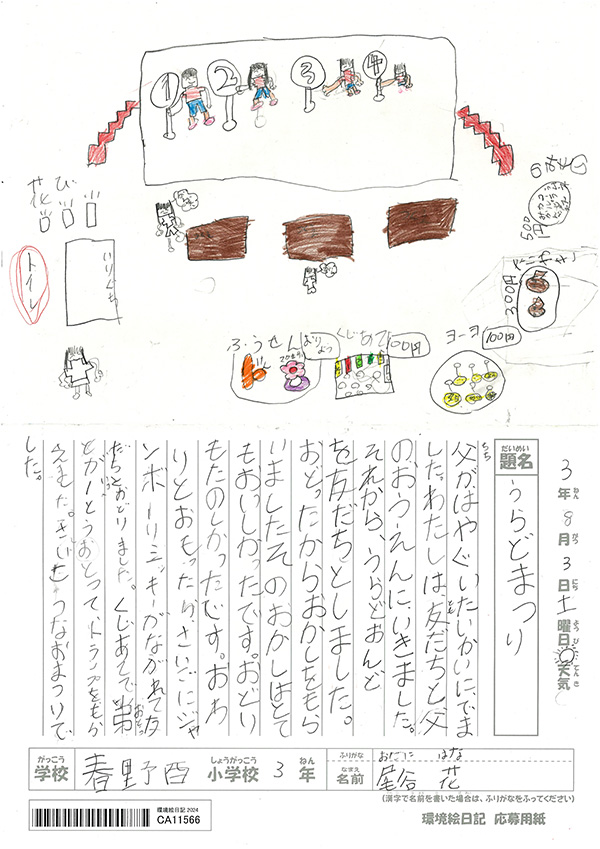 1
2
3
4
花び
トイレ
いりぐち
のみもの
500円
300円
ふうせん
くじあて
100円
ヨーヨ
100円
だいめい
題名
うらどまつり
3年8月3日土曜日 天気
ねん
がつ
にち
ようび
てんき
ちち
父がはやぐいたいかいにでま
した。わたしは、友だちと父
のおうえんに、いきました。
それから、うらどおんど
を友だちとしました。
おどったからおかしをもら
いましたそのおかしはとて
もおいしかったです。おどり
もたのしかったです。おわ
りとおもったら、さいごにジャ
ンボーリミッキーがながれて友
だちとおどりました。くじあてで弟
とが1とうおとって、トランプをもら
えました。
つなおまつりで
した。
がっこう
学校
春野西
しょうがっこう
小学校
3
ねん
年
ふりがな
おだに はな
なまえ
名前
尾谷 花
(漢字で名前を書いた場合は、ふりがなをふってください)
環境絵日記 2024
CA11566
環境絵日記 応募用紙